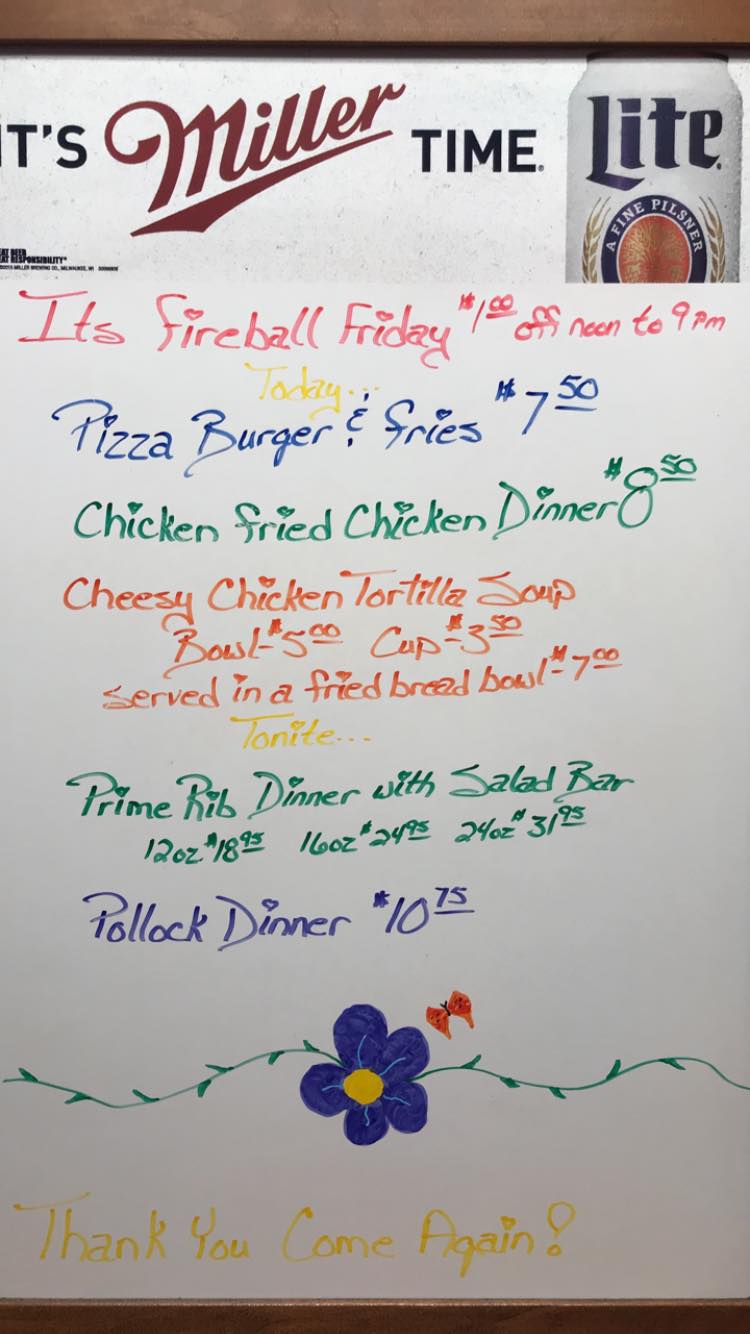 IT'S Miller TIME.
Lite
A FINE PILSNER
Its Fireball Friday $1.00 off noon to 9 pm
Today...
Pizza Burger & fries $7.50
Chicken fried Chicken Dinner $8.50
Cheesy Chicken Tortilla Soup
Bowl-$5.00 Cup-$3.50
served in a fried bread bowl-$7.00
Tonite...
Prime Rib Dinner with Salad Bar
12oz $18.95 16oz $24.95 24oz $31.95
Pollock Dinner $10.75
Thank You Come Again!